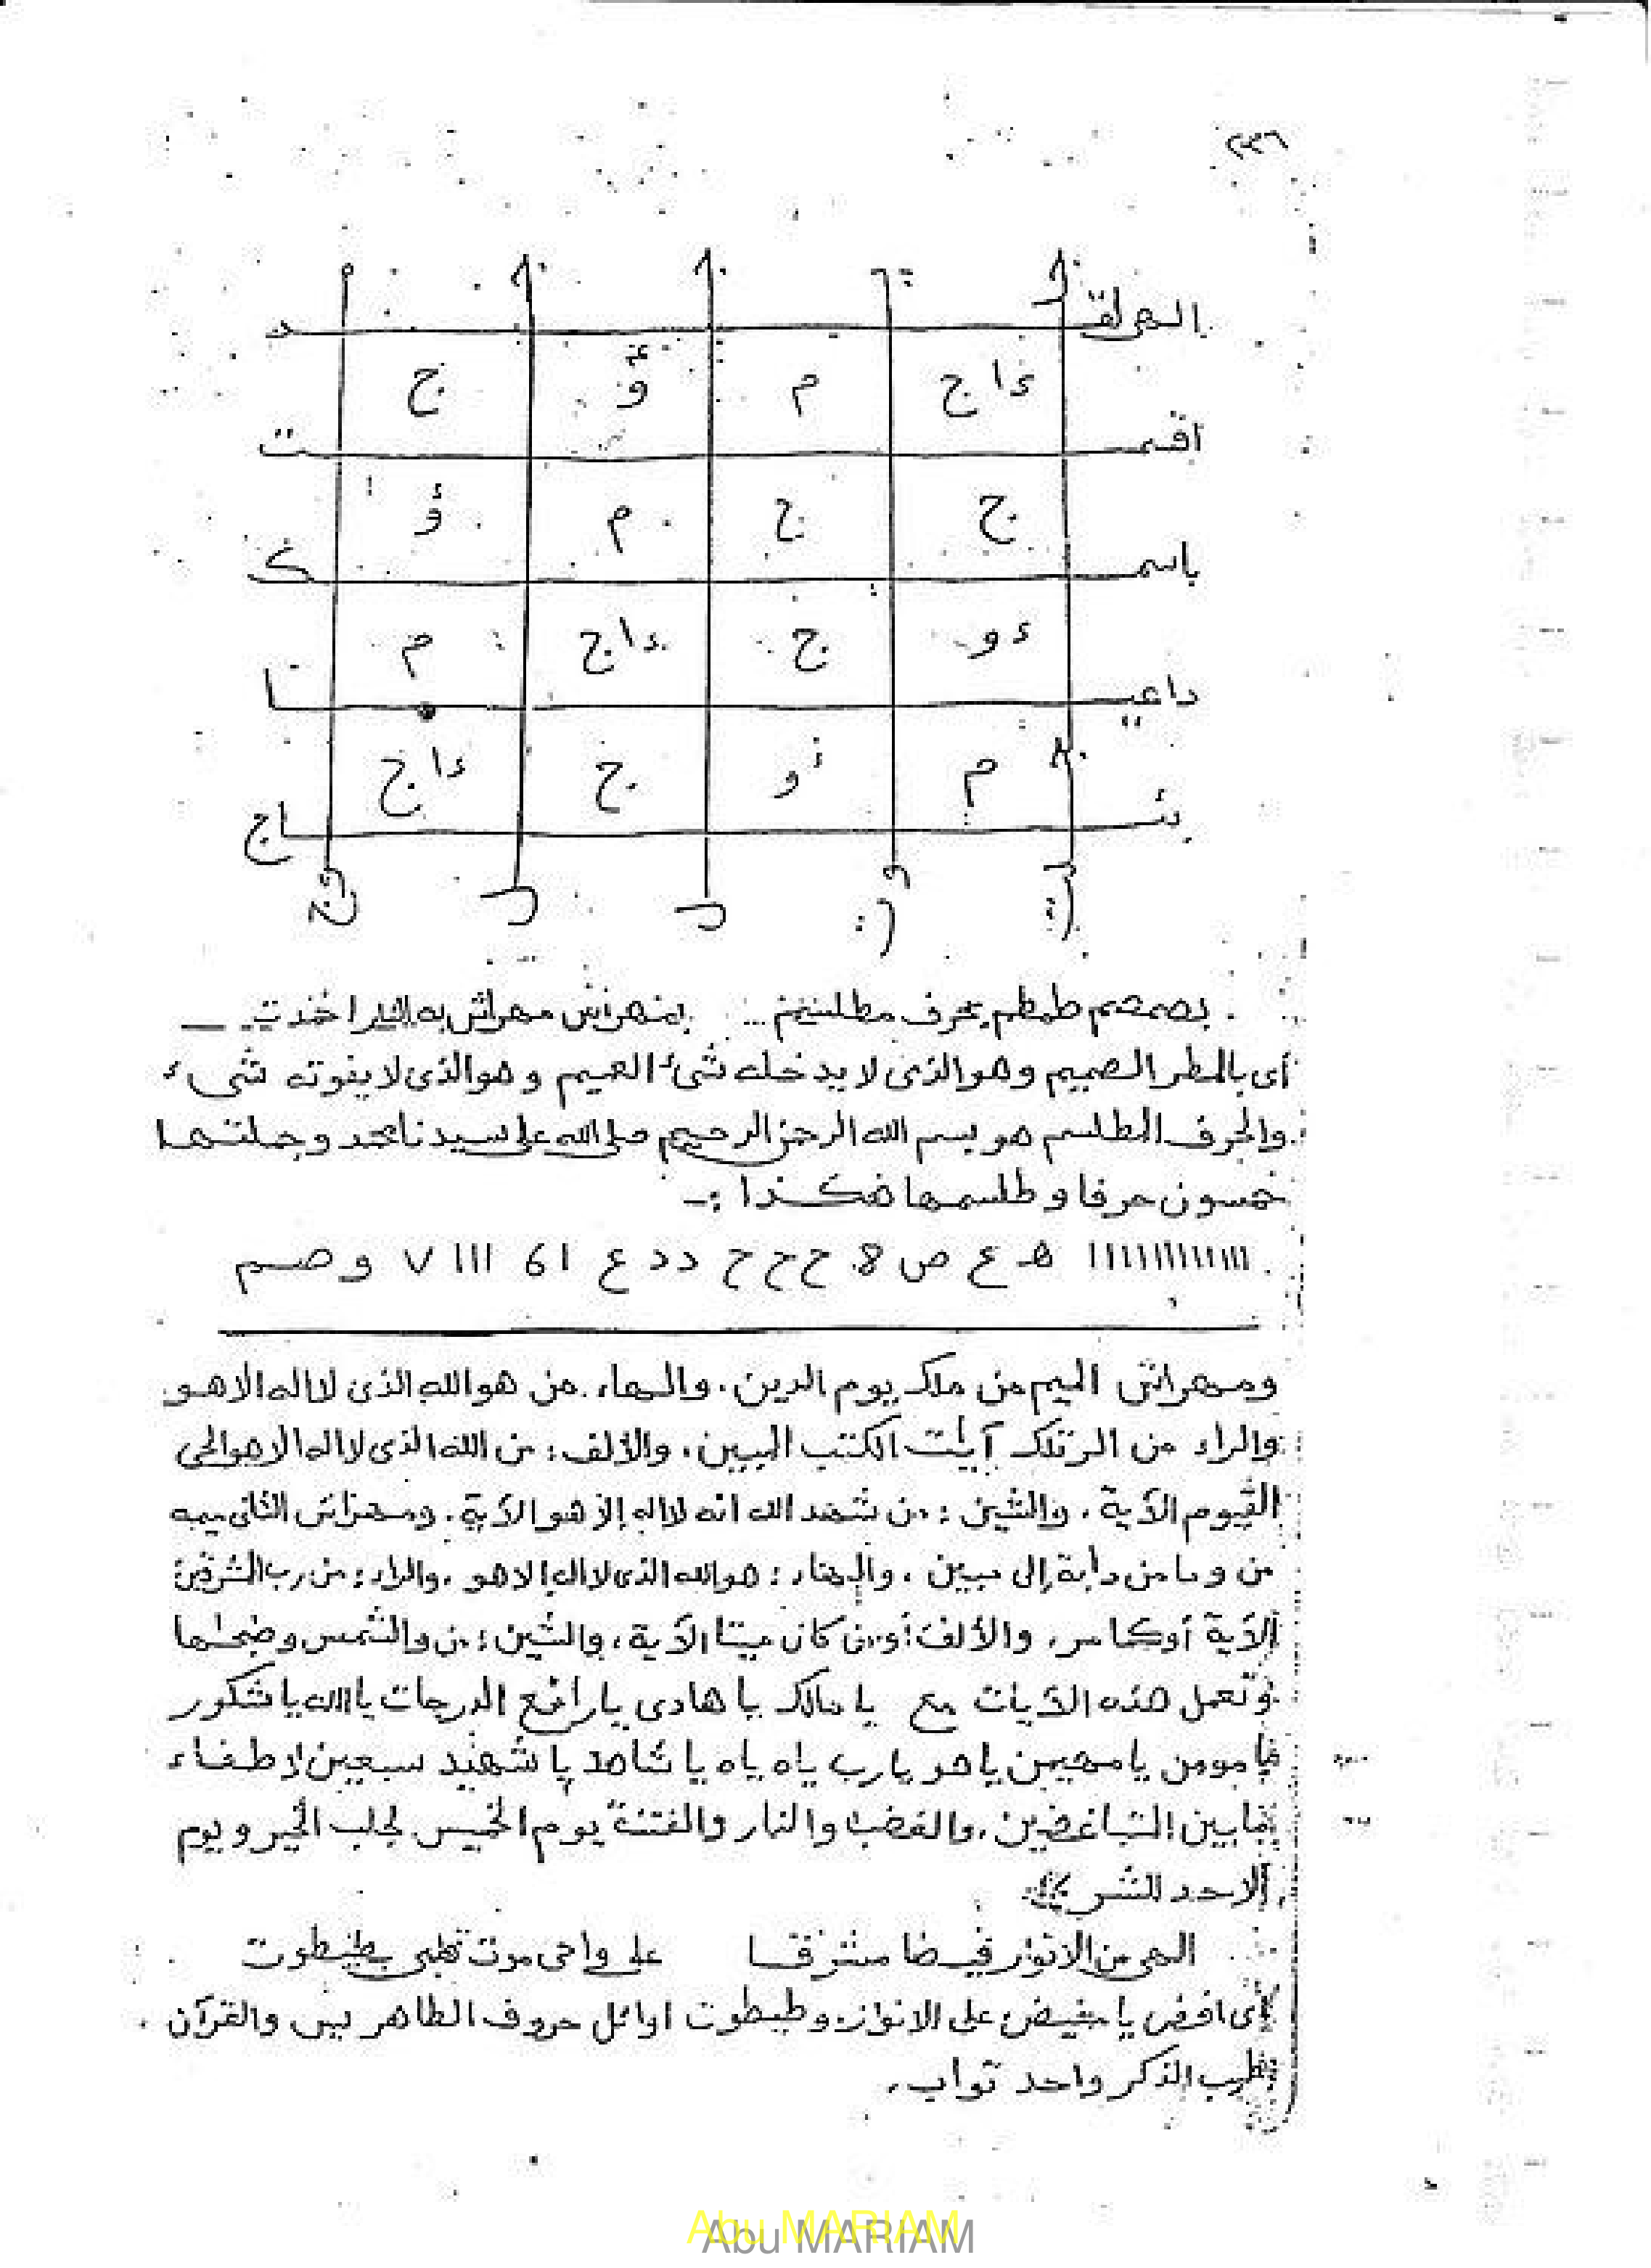 ٢٣٦
إلهي لقد
ءاج م ؤ ج
اقمت
ج ج م ؤ
باسمك
ءو ج ءاج م
داعيا
م ؤ ج ءاج
بتاج
بصمصم طمطم بحرف مطلسم بمهراش مهراش به النار اخمدت
أى بالمطر الصميم وهو الذى لا يدخله شىء العيم وهو الذى لا يفوته شىء
والحرف المطلسم هو بسم الله الرحمن الرحيم صلى الله على سيدنا محمد وجملتها
خمسون حرفا و طلسمها هكذا :-
ااااااااااااا ھ ع ص 8 ح ح ح د د ع 61 ااا ٧ وصم
ومهراش الميم من ملك يوم الدين. والهاء. من هو الله الذى لا اله الا هو
والراء من الر تلك آيٰت الكتب المبين. والألف: من الله الذى لا اله الا هو الحى
القيوم الآية. والشين: من شهد الله انه لا اله إلا هو الآية. ومهراش الثانى ميمه
من وما من دابة إلى مبين، والهاء: هو الله الذى لا اله إلا هو، والراء: من رب المشرقين
الآية أو كما مر، والألف: أو من كان ميتا الآية، والشين: من والشمس وضحٰها
وتعمل هذه الآيات مع يا مالك يا هادى يا رافع الدرجات يا الله يا شكور
يا مومن يا مهيمن يا هو يا رب ياه ياه يا شاهد يا شهيد سبعين لاطفاء
ما بين المتباغضين، والغضب والنار والفتنة يوم الخميس لجلب الخير ويوم
الاحد للشر
الهى من الانوار فيضا مشرقا على واحى موت قلبى بطيطوت
افض يا مفيض على الانوار وطيطوت اوائل حروف الطاهر يس والقرآن
طيب الذكر واحد تواب.
Abu MARIAM
Abu MARIAM